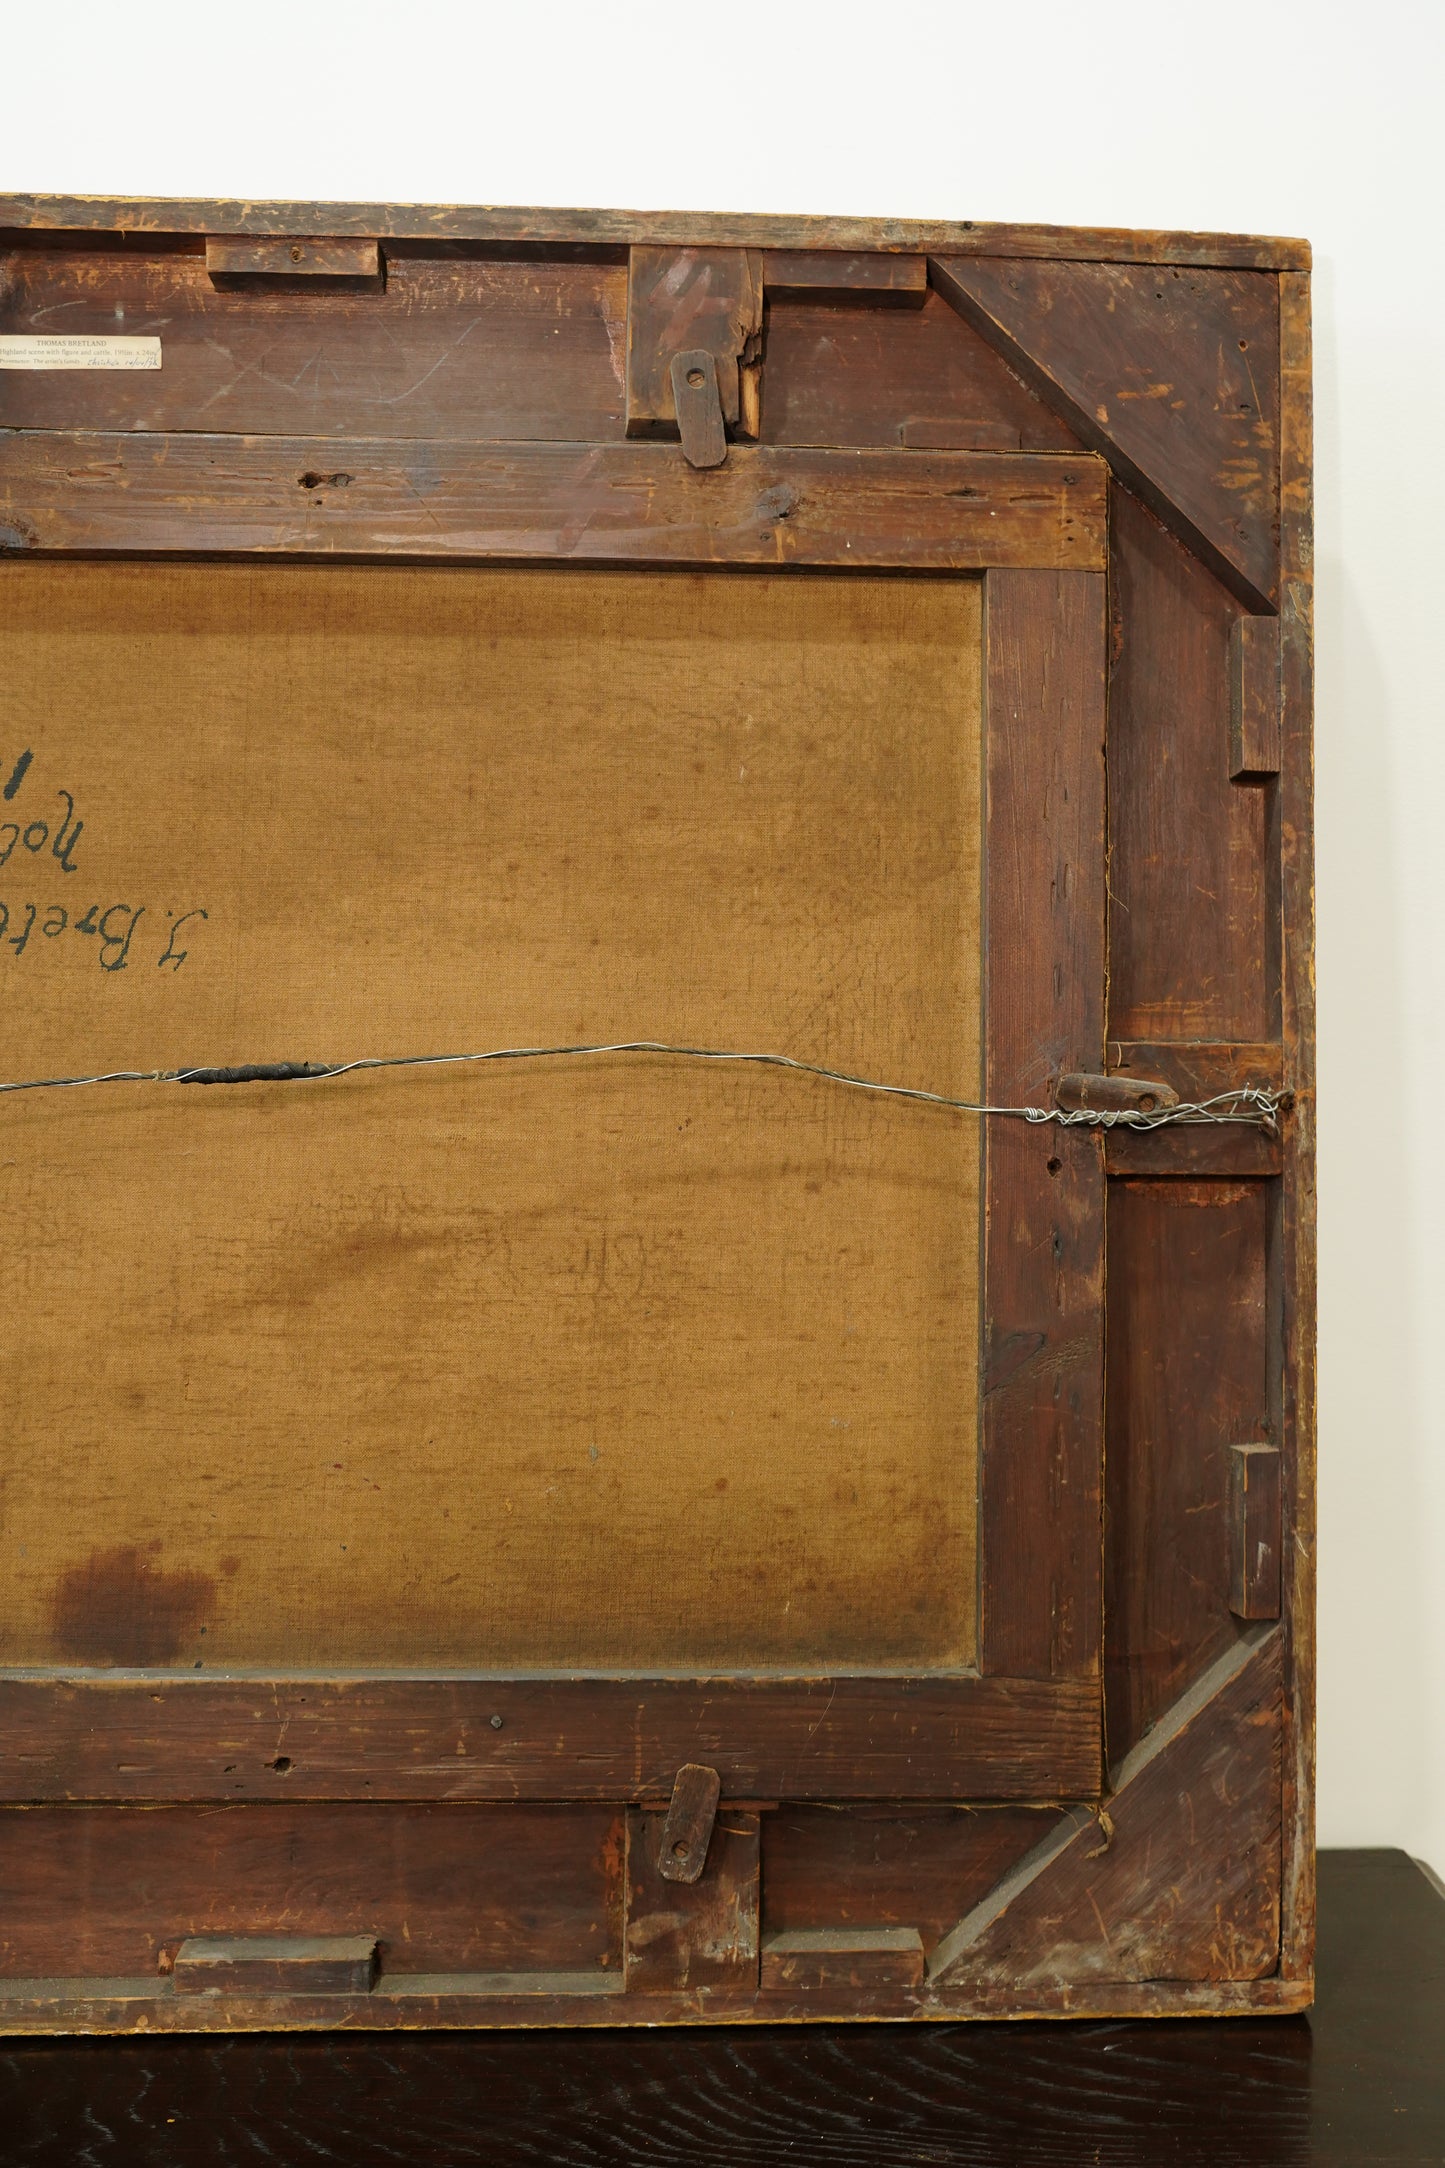 THOMAS BRETLAND
Highland scene with figure and cattle. 19½in. x 24in.
Provenance: The artist's family.
T. Bret
Not